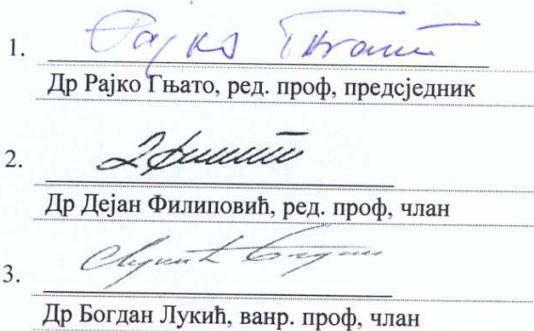 1. Рајко Гњато
Др Рајко Гњато, ред. проф, предсједник
2.
Др Дејан Филиповић, ред. проф, члан
3. Лукић Богдан
Др Богдан Лукић, ванр. проф, члан